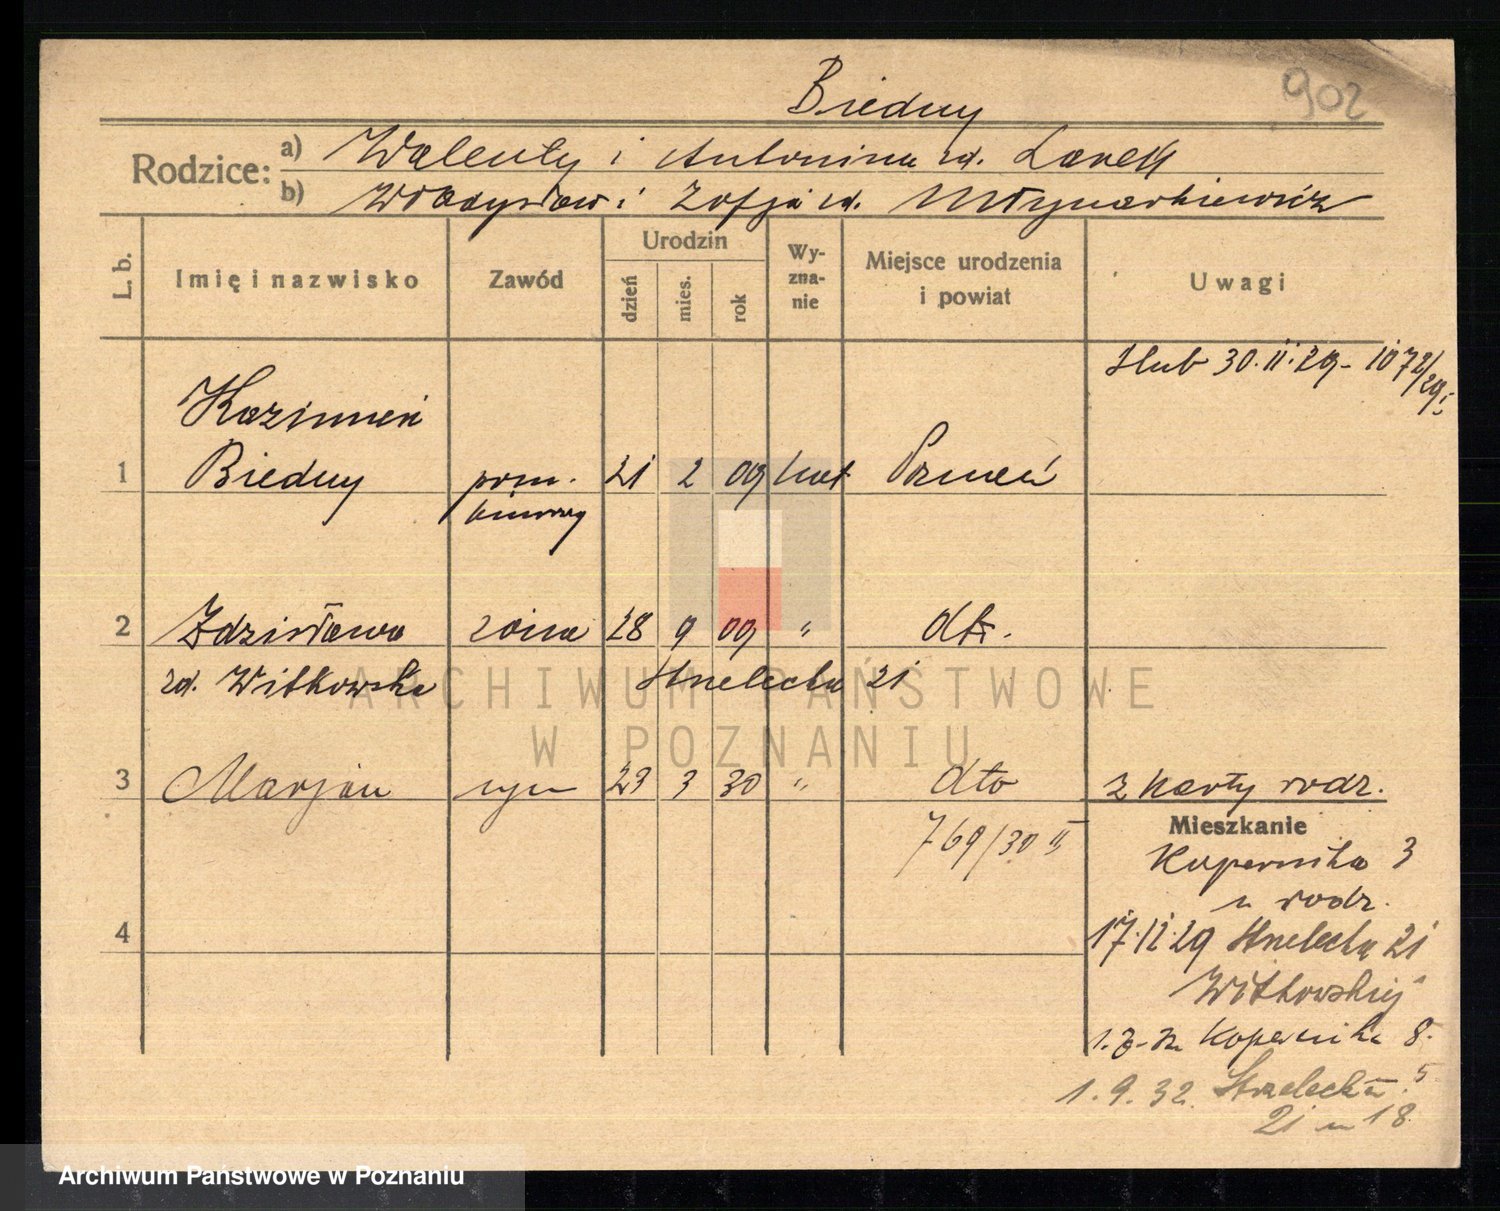 Biedny
902
Rodzice: a) Walenty i Antonina zd. Lanek
b) Władysław i Zofja zd. Młynarkiewicz
L. b.
Imię i nazwisko
Zawód
Urodzin
dzień
mies.
rok
Wy-
zna-
nie
Miejsce urodzenia
i powiat
Uwagi
ślub 30.11.29 - 1072/29
Kazimierz
1 Biedny pom. 21 2 09 kat Poznań
biurowy
2 Zdzisława żona 28 9 09 " dto.
zd. Witkowska Strzelecka 21
3 Marjan syn 23 3 30 " dto z karty rodz.
769/30 II
Mieszkanie
Kopernika 3
u rodz.
4
17.12.29 Strzelecka 21
Witkowskiej
Kopernika 8.
1.9.32. Strzelecka 5
21 m 18
ARCHIWUM PAŃSTWOWE
W POZNANIU
Archiwum Państwowe w Poznaniu